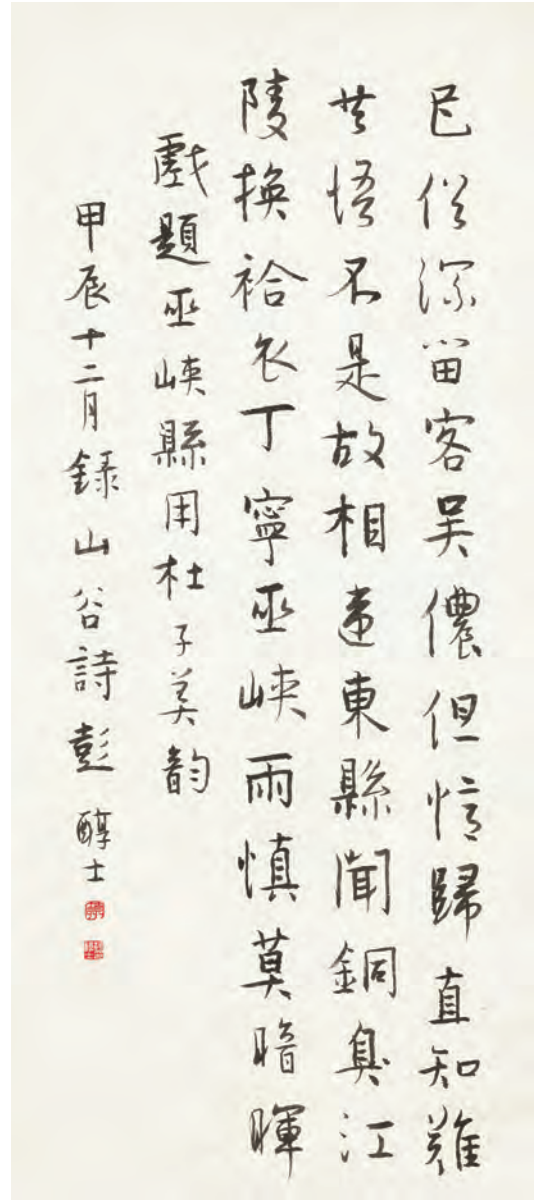 巴俗深留客吴儂但憶歸直知難
共悟不是故相違東縣聞銅臭江
陵換袷衣丁寧巫峽雨慎莫暗暉
戲題巫峽縣用杜子美韵
甲辰十二月録山谷詩彭醇士